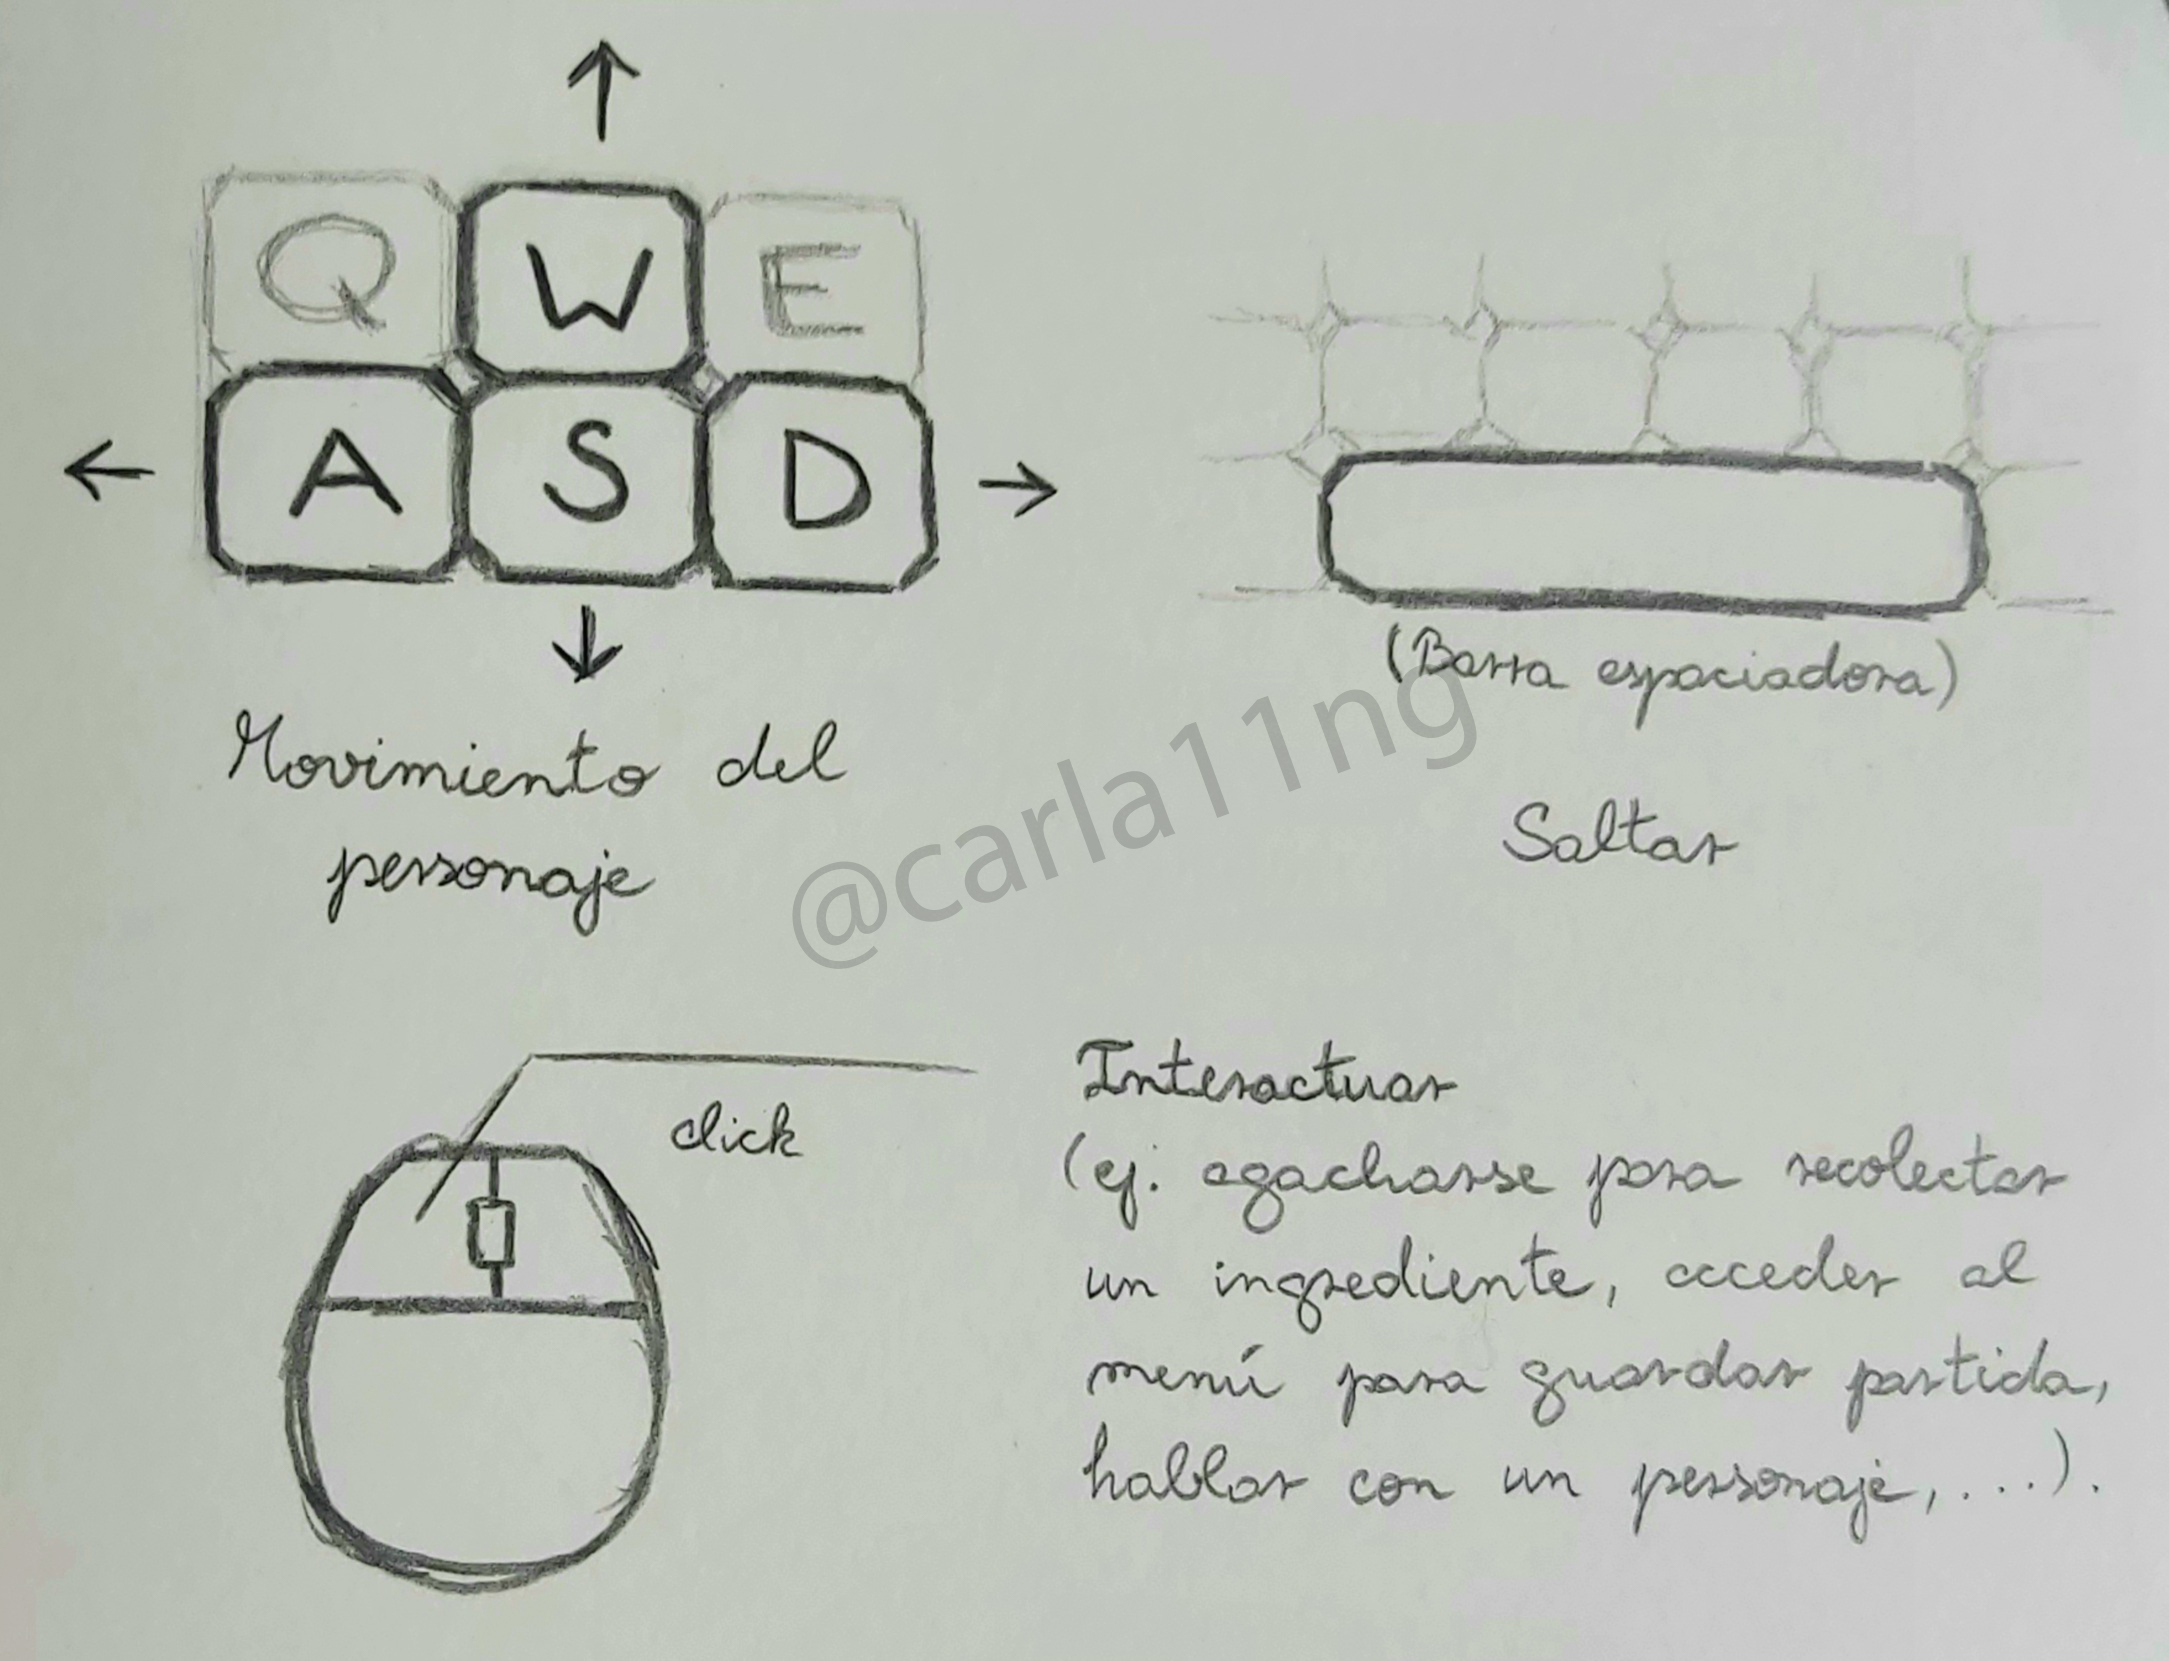 Q W E
A S D
Movimiento del
personaje
(Barra espaciadora)
Saltar
@carla11ng
click
Interactuar
(ej. agacharse para recolectar
un ingrediente, acceder al
menú para guardar partida,
hablar con un personaje, ...).